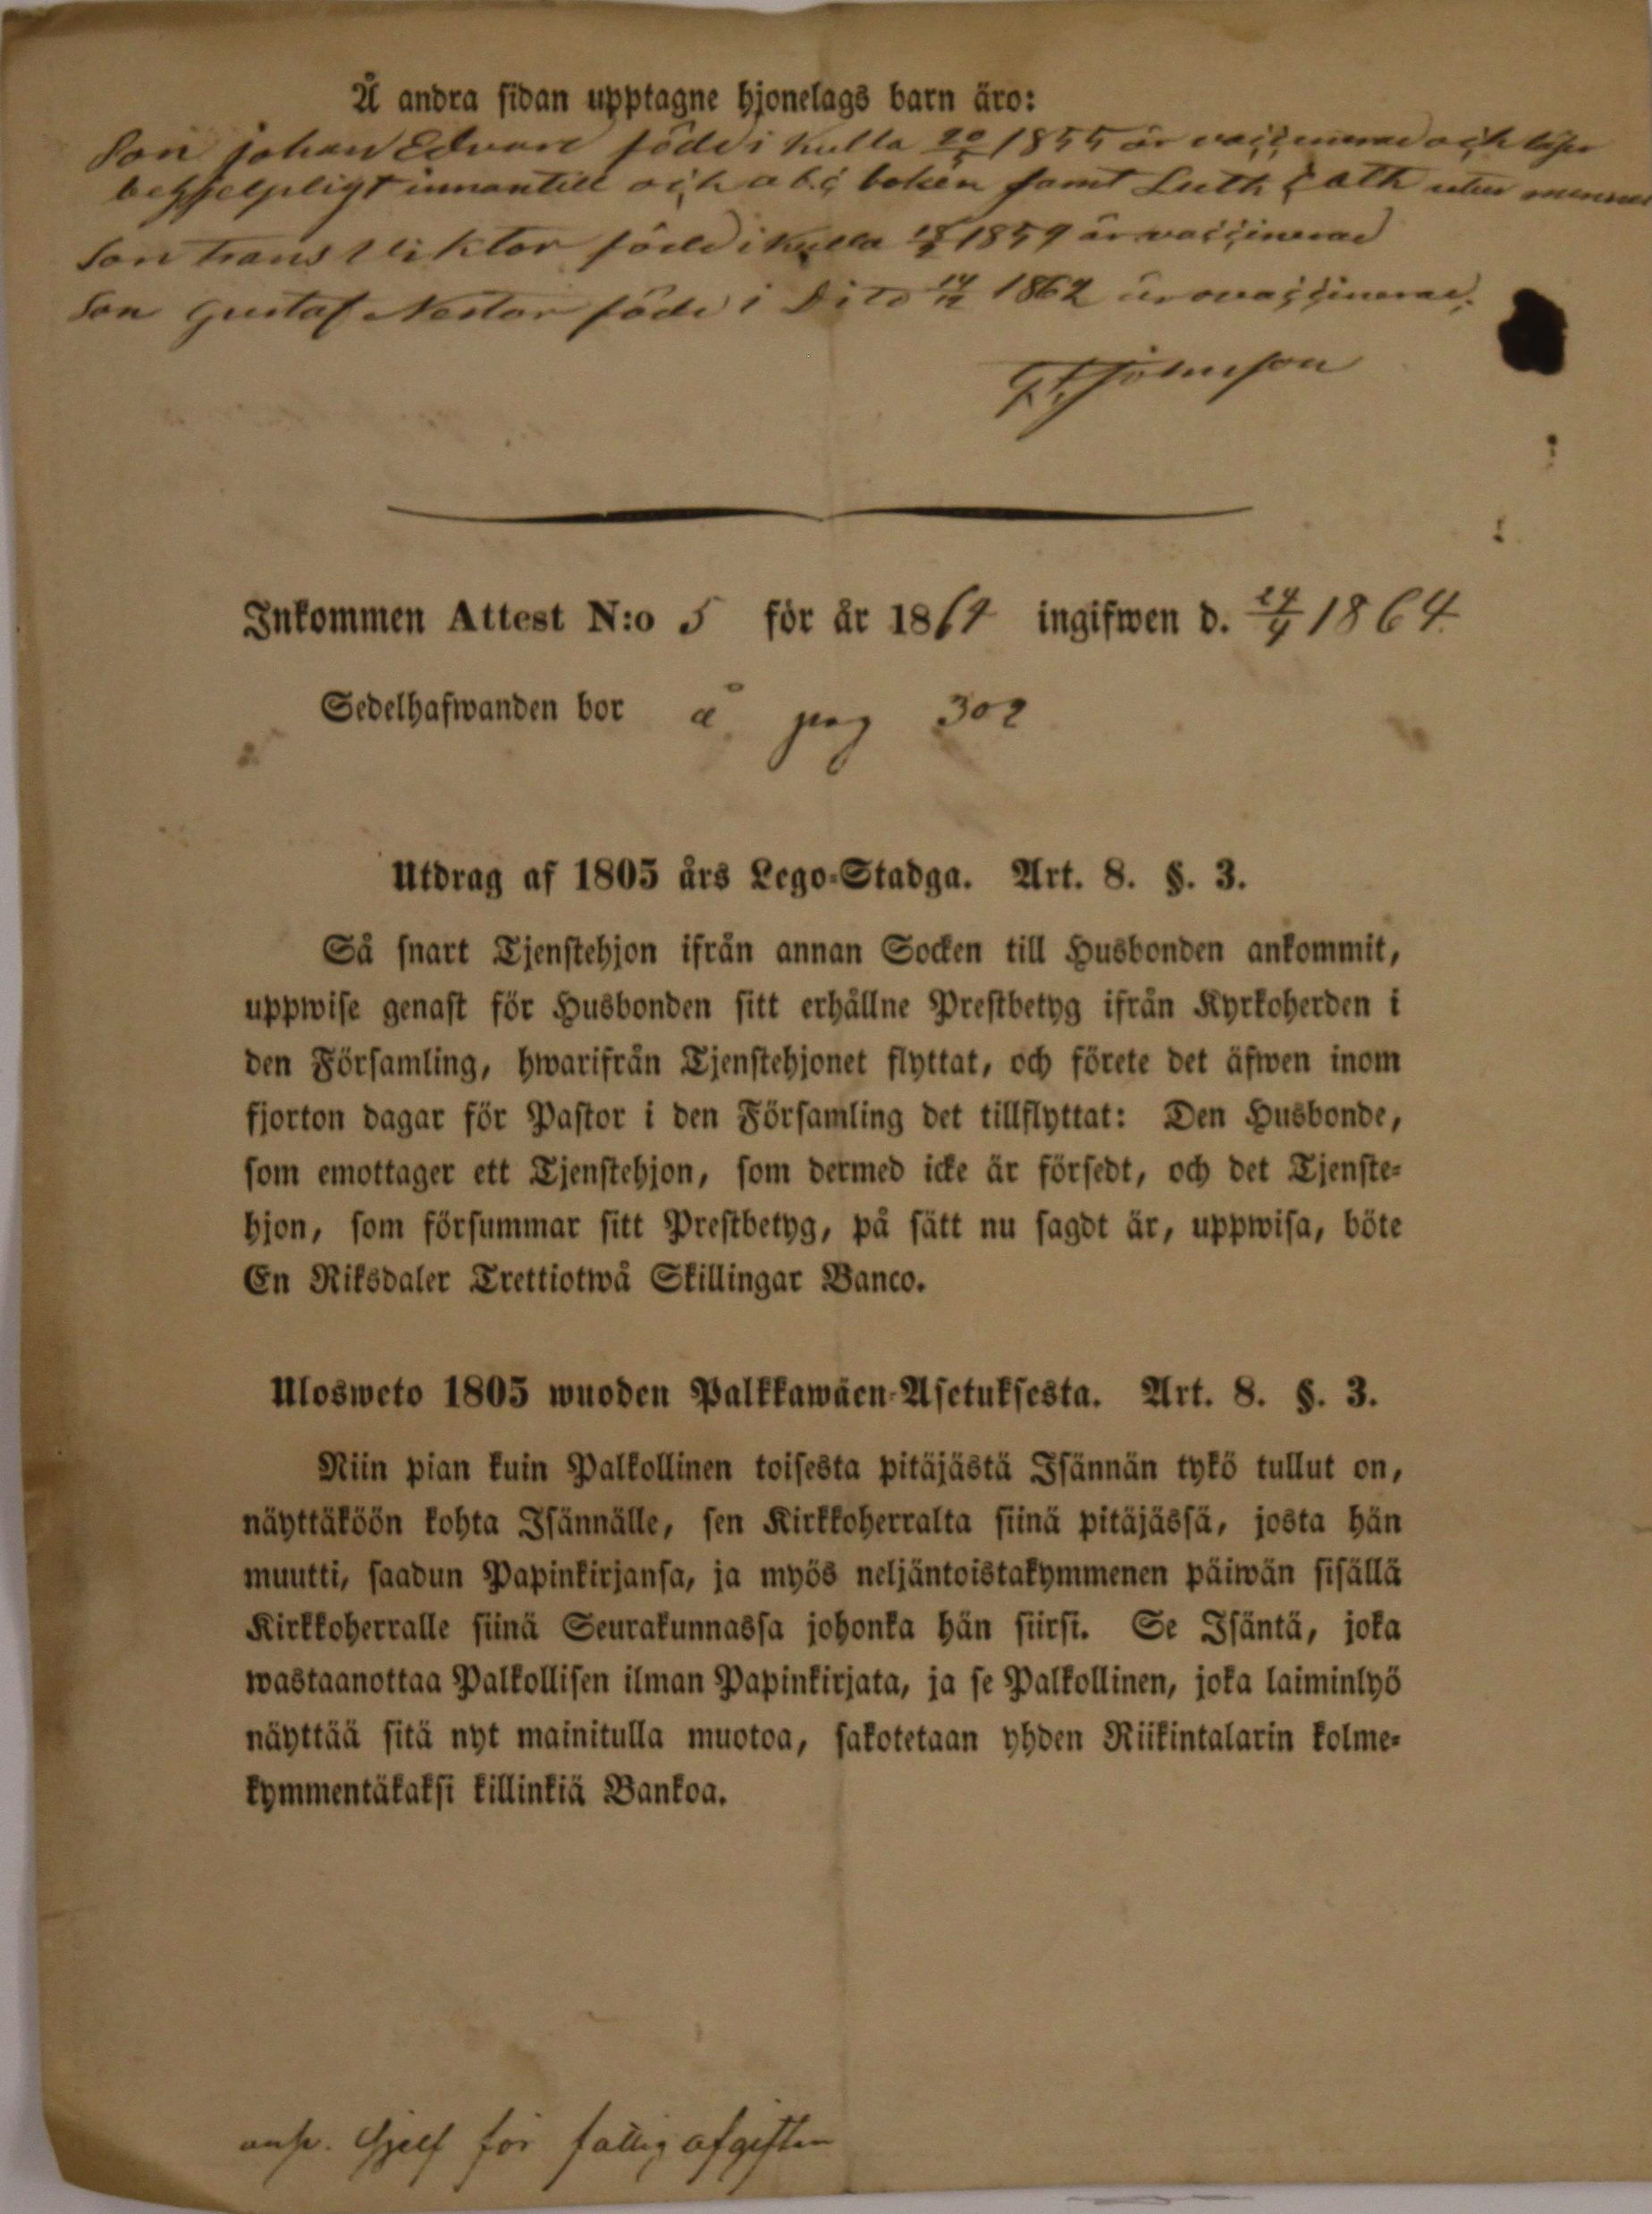 Å andra sidan upptagne hjonelags barn äro:
Son Johan Edvard född i Kulla 20/5 1855 är vaccinerad och läser
behjelpligt innantill och abc boken samt Luth Cath utur minnet
Son Frans Viktor född i Kulla 1859 är vaccinerad
Son Gustaf Nestor född i Dito 14/12 1862 är ovaccinerad.
Inkommen Attest N:o 5 för år 1864 ingifwen d. 24/4 1864.
Sedelhafwanden bor å pag 302
Utdrag af 1805 års Lego-Stadga. Art. 8. §. 3.
Så snart Tjenstehjon ifrån annan Socken till Husbonden ankommit,
uppwise genast för Husbonden sitt erhållne Prestbetyg ifrån Kyrkoherden i
den Församling, hwarifrån Tjenstehjonet flyttat, och förete det äfwen inom
fjorton dagar för Pastor i den Församling det tillflyttat: Den Husbonde,
som emottager ett Tjenstehjon, som dermed icke är försedt, och det Tjenste-
hjon, som försummar sitt Prestbetyg, på sätt nu sagdt är, uppwisa, böte
En Riksdaler Trettiotwå Skillingar Banco.
Ulosweto 1805 wuoden Palkkawäen-Asetuksesta. Art. 8. §. 3.
Niin pian kuin Palkollinen toisesta pitäjästä Isännän tykö tullut on,
näyttäköön kohta Isännälle, sen Kirkkoherralta siinä pitäjässä, josta hän
muutti, saadun Papinkirjansa, ja myös neljäntoistakymmenen päiwän sisällä
Kirkkoherralle siinä Seurakunnassa johonka hän siirsi. Se Isäntä, joka
wastaanottaa Palkollisen ilman Papinkirjata, ja se Palkollinen, joka laiminlyö
näyttää sitä nyt mainitulla muotoa, sakotetaan yhden Riikintalarin kolme-
kymmentäkaksi killinkiä Bankoa.
sjelf för fattig afgiften